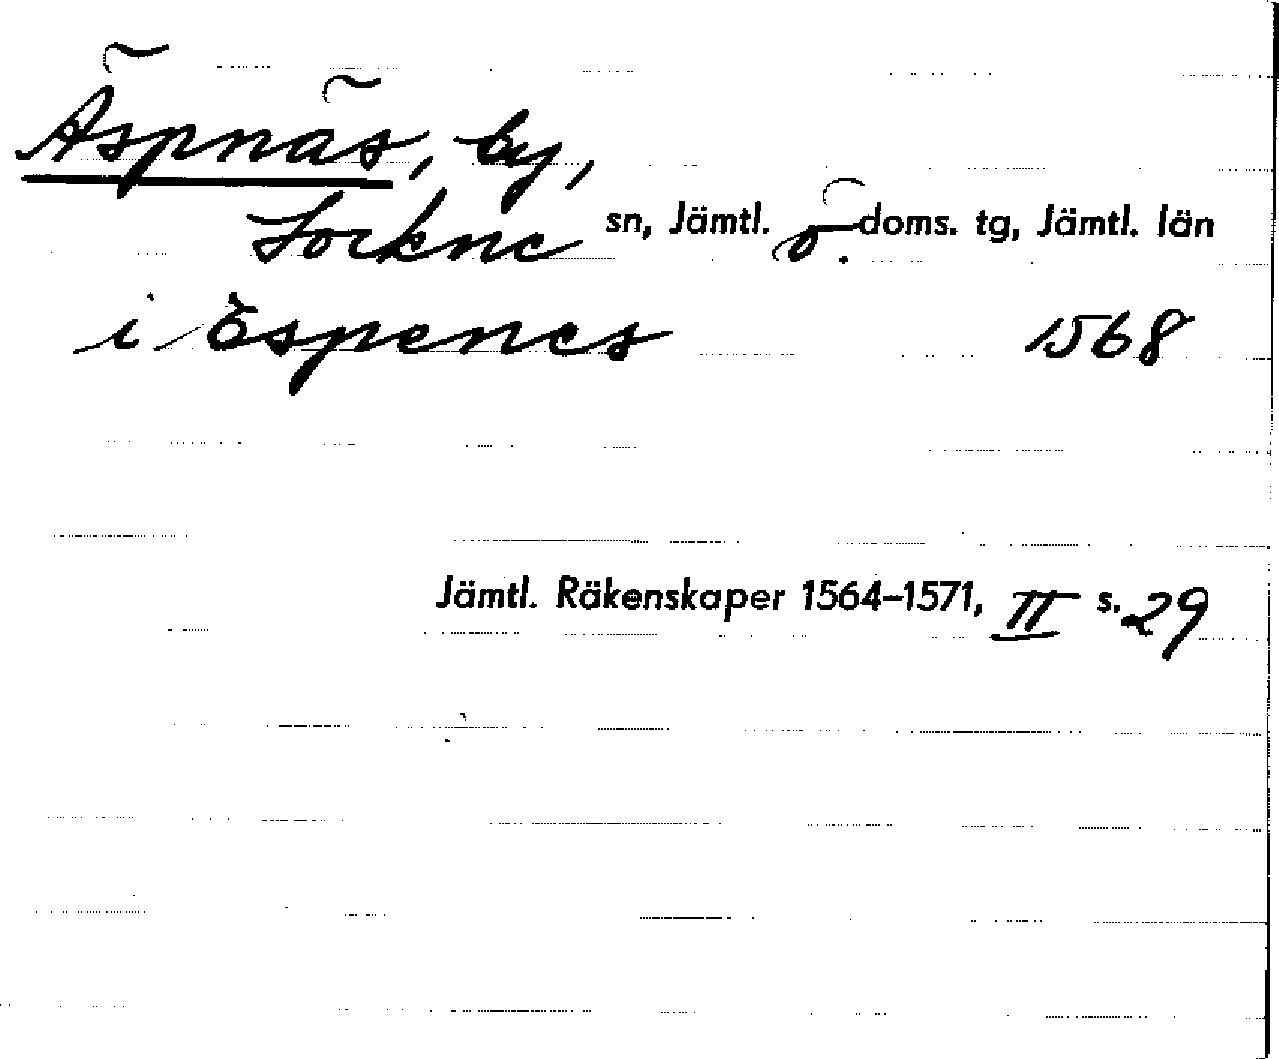 Äspnäs, by,
Lockne sn, Jämtl. ö. doms. tg, Jämtl. län
i Espenes 1568
Jämtl. Räkenskaper 1564–1571, II s. 29